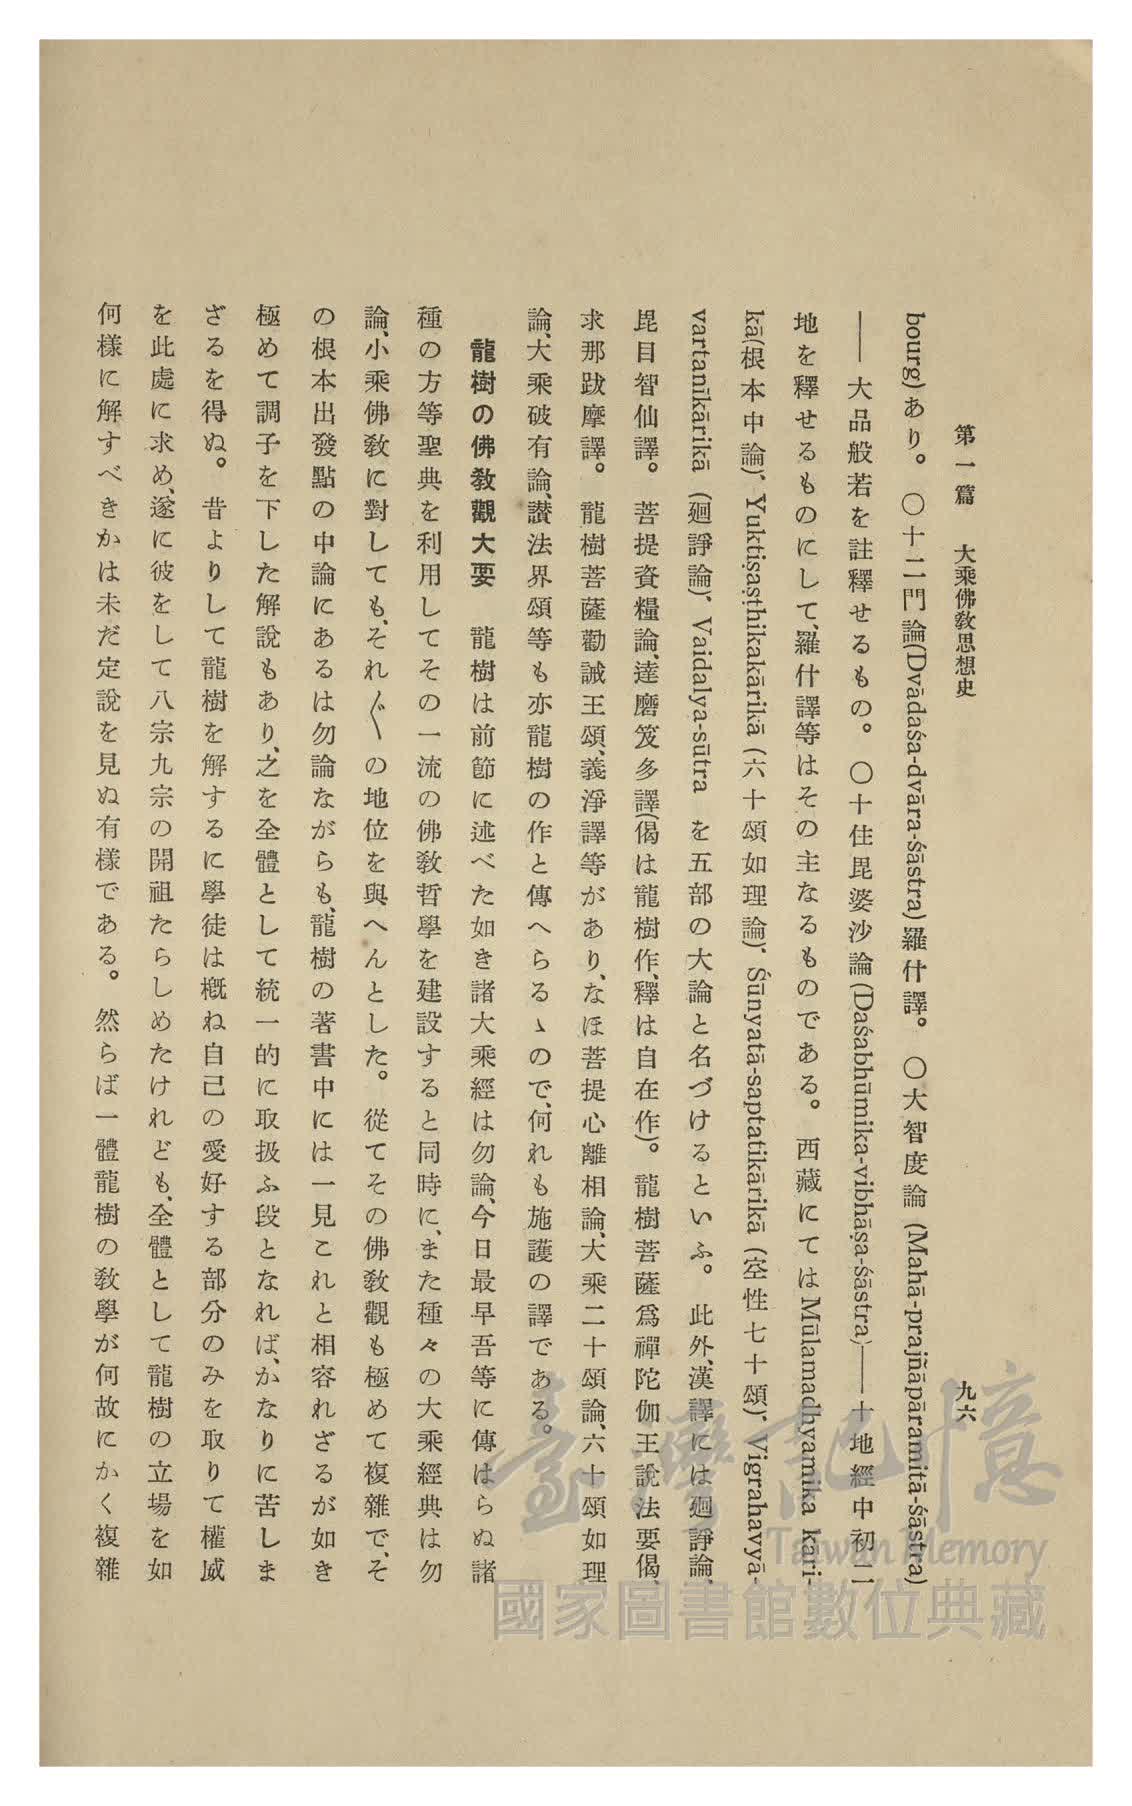 第一篇　大乘佛敎思想史　九六
bourg)あり。〇十二門論(Dvādaśa-dvāra-śāstra)羅什譯。〇大智度論 (Mahā-prajñāpāramitā-śāstra)
――大品般若を註釋せるもの。〇十住毘婆沙論(Daśabhūmika-vibhāṣa-śāstra)――十地經中初二
地を釋せるものにして、羅什譯等はその主なるものである。西藏にてはMūlamadhyamika kāri-
kā(根本中論)、Yuktiṣaṣṭhikakārikā (六十頌如理論)、Śūnyatā-saptatikārikā (空性七十頌)、Vigrahavyā-
vartanīkārikā (廻諍論)、Vaidalya-sūtra を五部の大論と名づけるといふ。此外、漢譯には廻諍論、
毘目智仙譯。菩提資糧論、達磨笈多譯(偈は龍樹作、釋は自在作)。龍樹菩薩爲禪陀伽王說法要偈、
求那跋摩譯。龍樹菩薩勸誡王頌、義淨譯等があり、なほ菩提心離相論、大乘二十頌論、六十頌如理
論、大乘破有論、讃法界頌等も亦龍樹の作と傳へらるゝので、何れも施護の譯である。
龍樹の佛敎觀大要　龍樹は前節に述べた如き諸大乘經は勿論、今日最早吾等に傳はらぬ諸
種の方等聖典を利用してその一流の佛敎哲學を建設すると同時に、また種々の大乘經典は勿
論、小乘佛敎に對しても、それ〴〵の地位を與へんとした。從てその佛敎觀も極めて複雜で、そ
の根本出發點の中論にあるは勿論ながらも、龍樹の著書中には一見これと相容れざるが如き
極めて調子を下した解說もあり、之を全體として統一的に取扱ふ段となれば、かなりに苦しま
ざるを得ぬ。昔よりして龍樹を解するに學徒は槪ね自己の愛好する部分のみを取りて權威
を此處に求め、遂に彼をして八宗九宗の開祖たらしめたけれども、全體として龍樹の立場を如
何樣に解すべきかは未だ定說を見ぬ有樣である。然らば一體龍樹の敎學が何故にかく複雜
臺灣記憶
Taiwan Memory
國家圖書館數位典藏